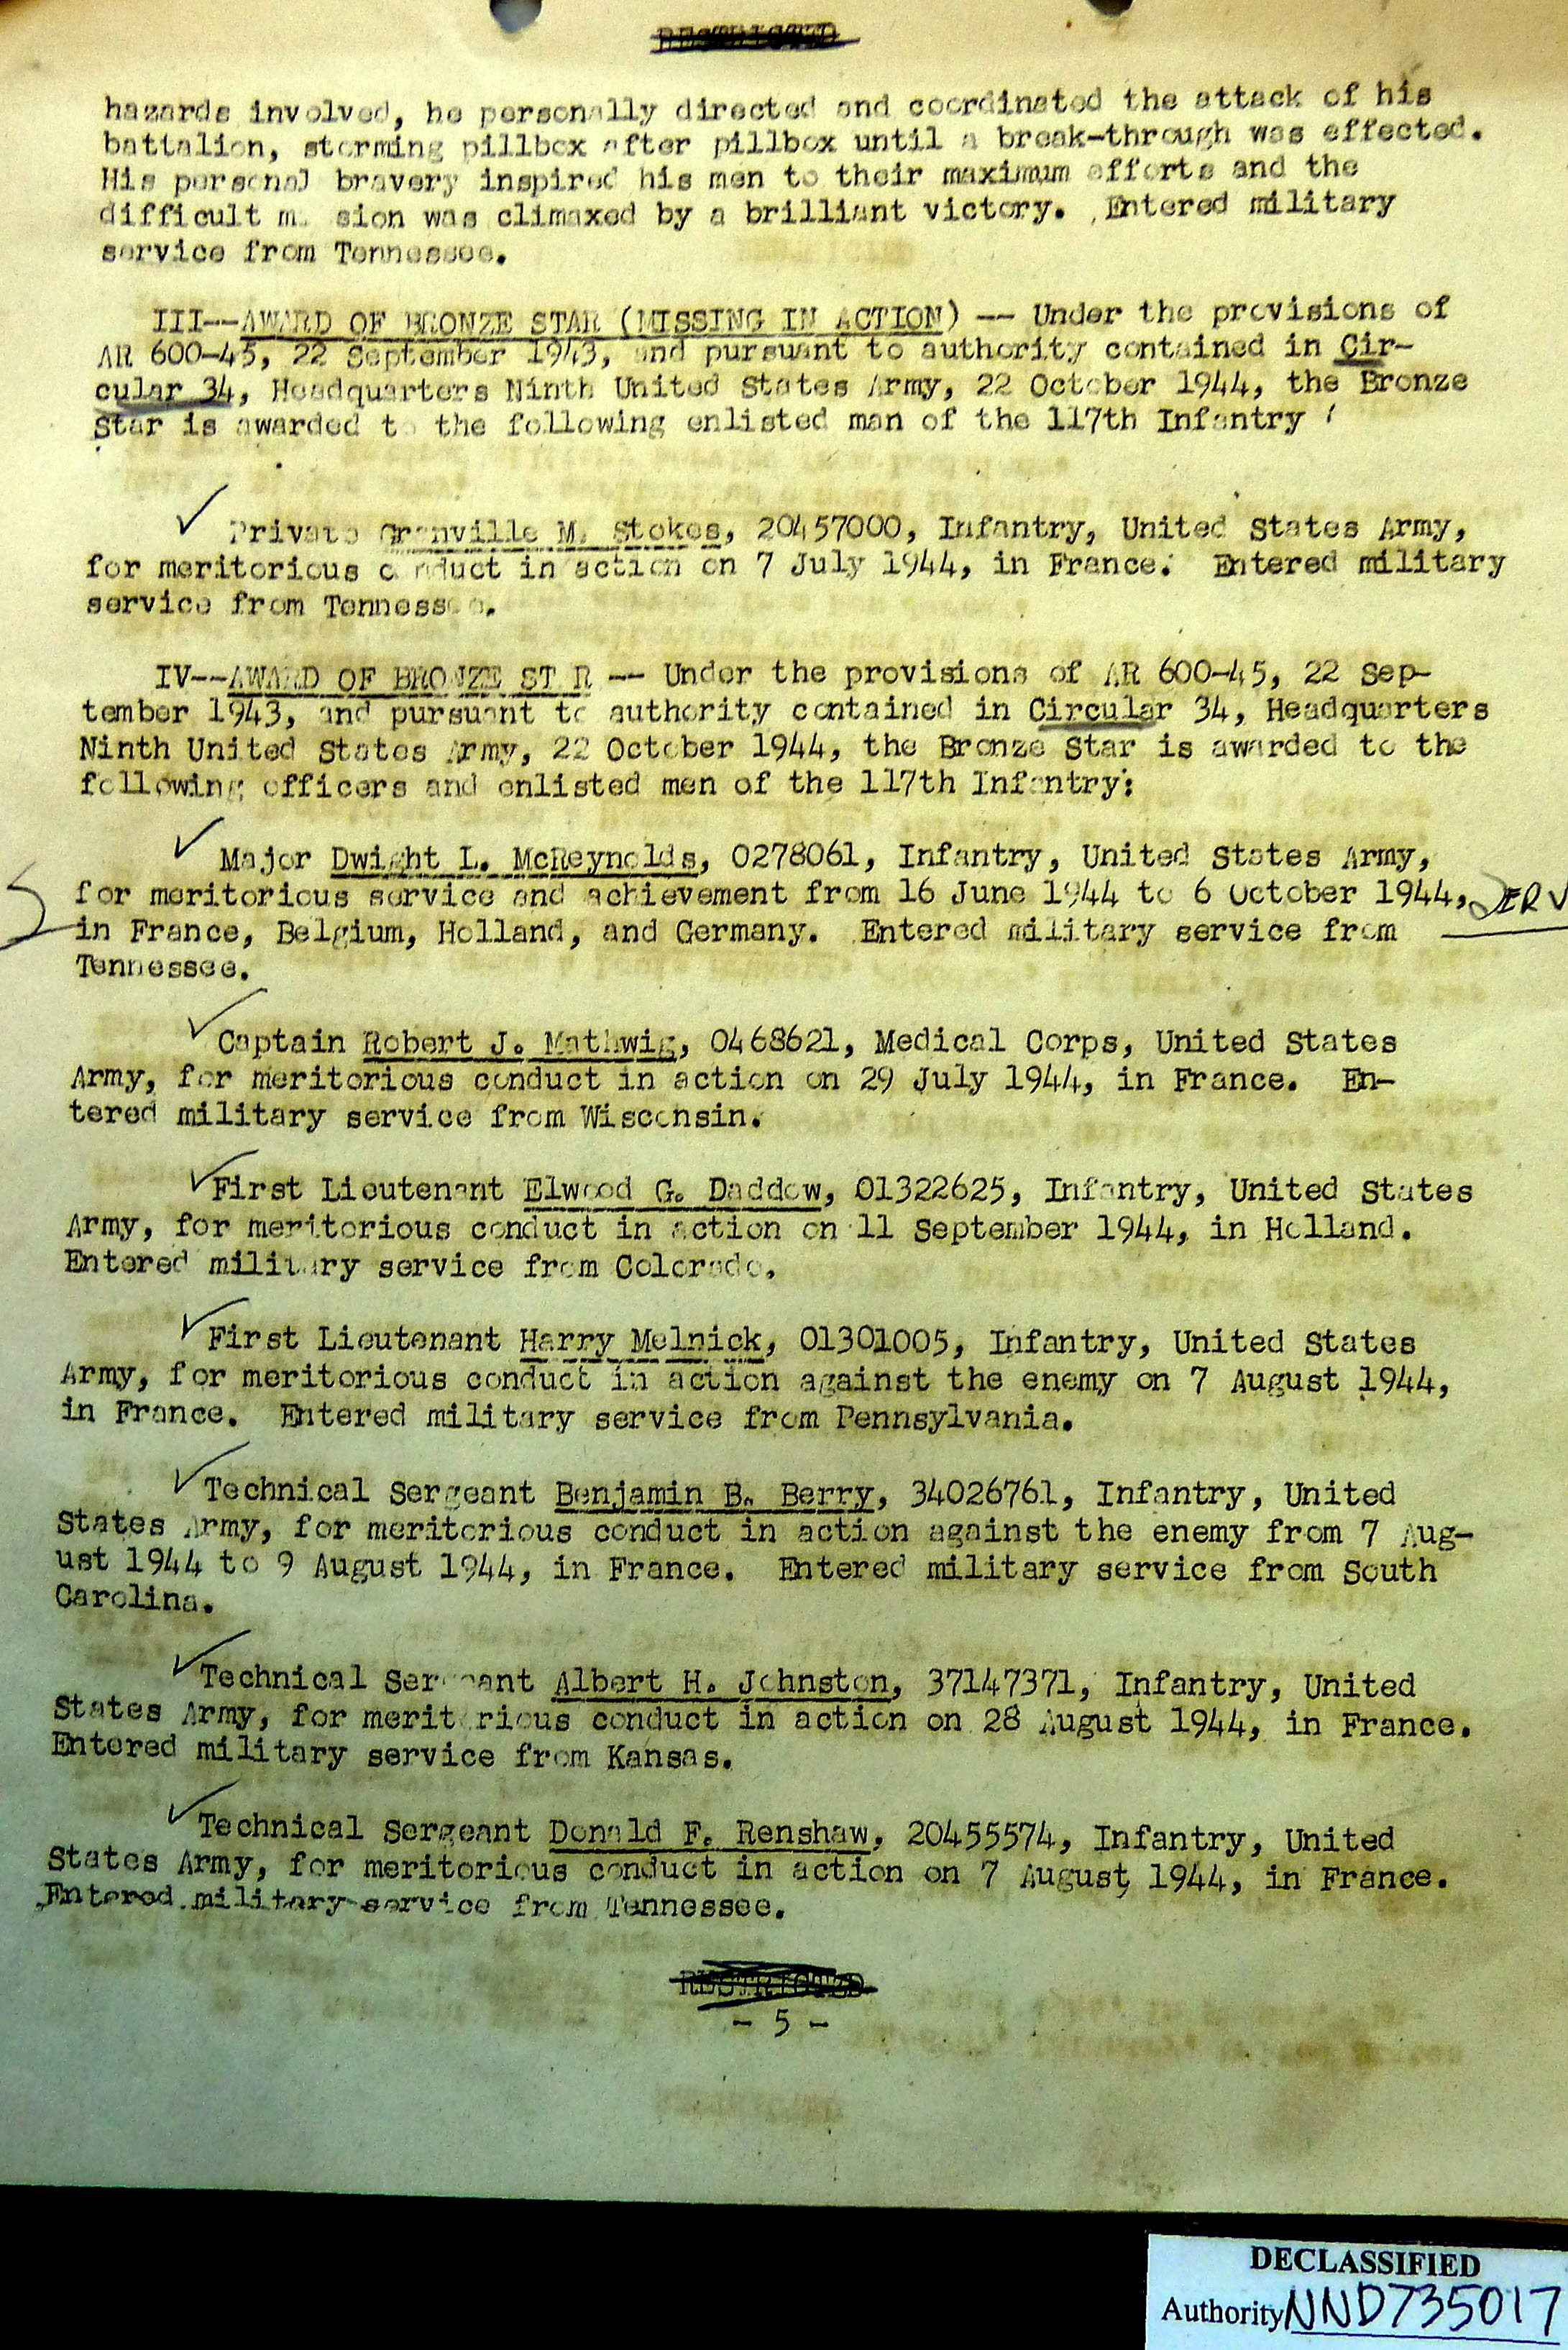 RESTRICTED
hazards involved, he personally directed and coordinated the attack of his
battalion, storming pillbox after pillbox until a break-through was effected.
His personal bravery inspired his men to their maximum efforts and the
difficult m sion was climaxed by a brilliant victory. Entered military
service from Tennessee.
III--AWARD OF BRONZE STAR (MISSING IN ACTION) -- Under the provisions of
AR 600-45, 22 September 1943, and pursuant to authority contained in Cir-
cular 34, Headquarters Ninth United States Army, 22 October 1944, the Bronze
Star is awarded to the following enlisted man of the 117th Infantry
Private Granville M. Stokes, 20457000, Infantry, United States Army,
for meritorious conduct in action on 7 July 1944, in France. Entered military
service from Tennessee.
IV--AWARD OF BRONZE ST R -- Under the provisions of AR 600-45, 22 Sep-
tember 1943, and pursuant to authority contained in Circular 34, Headquarters
Ninth United States Army, 22 October 1944, the Bronze Star is awarded to the
following officers and enlisted men of the 117th Infantry:
Major Dwight L. McReynolds, 0278061, Infantry, United States Army,
for meritorious service and achievement from 16 June 1944 to 6 October 1944, SERV
in France, Belgium, Holland, and Germany. Entered military service from
Tennessee.
Captain Robert J. Mathwig, 0468621, Medical Corps, United States
Army, for meritorious conduct in action on 29 July 1944, in France. En-
tered military service from Wisconsin.
First Lieutenant Elwood G. Daddow, 01322625, Infantry, United States
Army, for meritorious conduct in action on 11 September 1944, in Holland.
Entered military service from Colorado.
First Lieutenant Harry Melnick, 01301005, Infantry, United States
Army, for meritorious conduct in action against the enemy on 7 August 1944,
in France. Entered military service from Pennsylvania.
Technical Sergeant Benjamin B. Berry, 34026761, Infantry, United
States Army, for meritorious conduct in action against the enemy from 7 Aug-
ust 1944 to 9 August 1944, in France. Entered military service from South
Carolina.
Technical Sergeant Albert H. Johnston, 37147371, Infantry, United
States Army, for meritorious conduct in action on 28 August 1944, in France.
Entered military service from Kansas.
Technical Sergeant Donald F. Renshaw, 20455574, Infantry, United
States Army, for meritorious conduct in action on 7 August 1944, in France.
Entered military service from Tennessee.
RESTRICTED
- 5 -
DECLASSIFIED
Authority NND735017